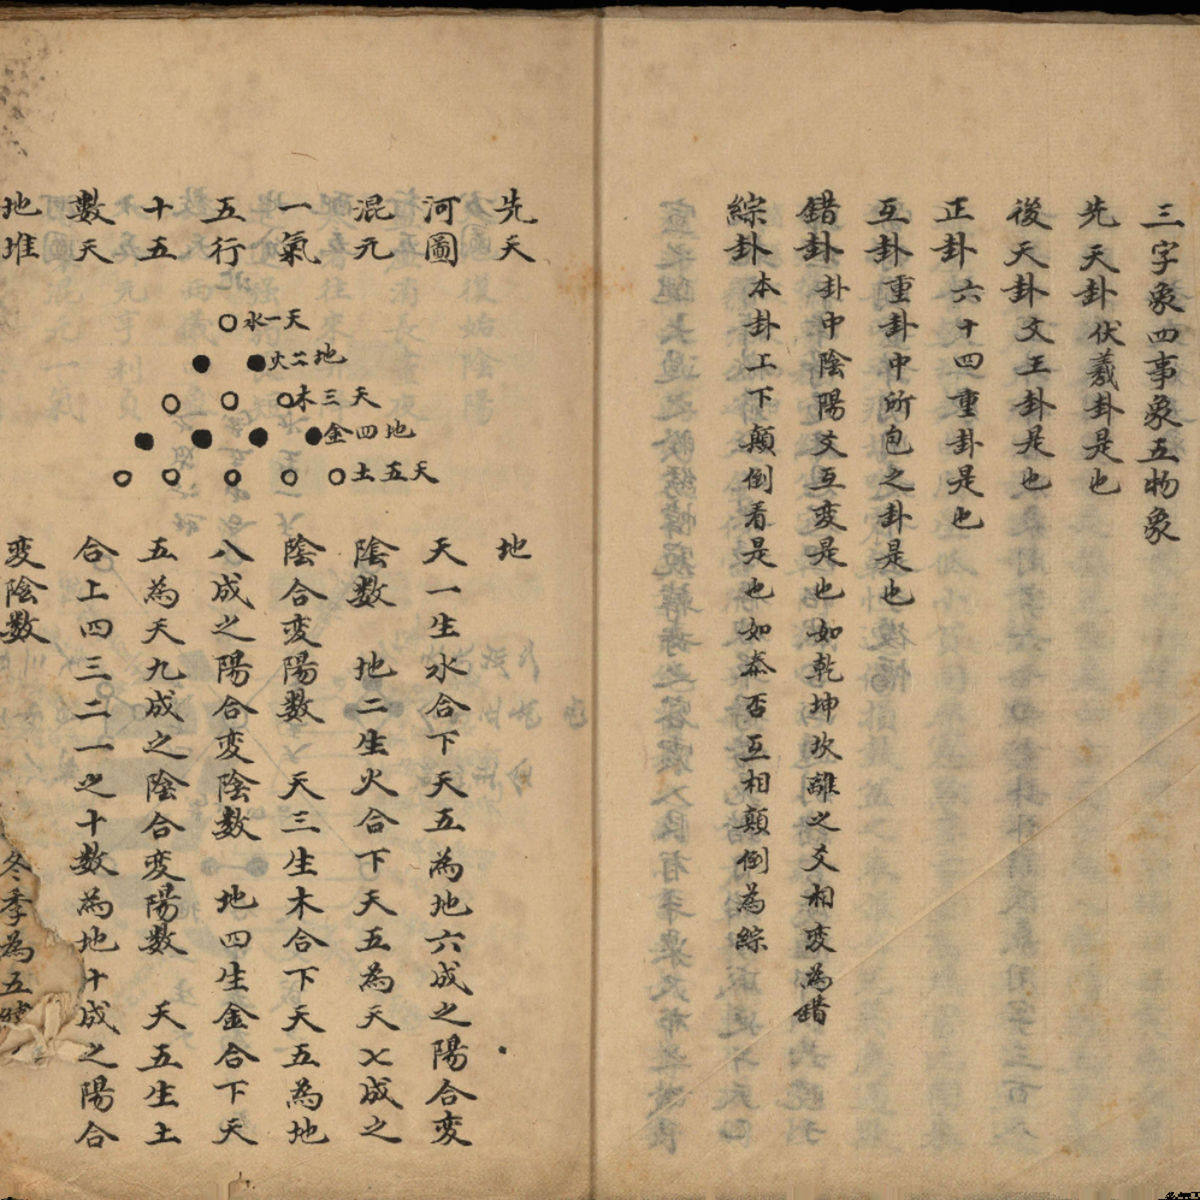 三字象四事象五物象
先天卦伏羲卦是也
後天卦文王卦是也
正卦六十四重卦是也
互卦重卦中所包之卦是也
錯卦卦中陰陽爻互変是也如乾坤坎離之爻相変為錯
綜卦本卦上下顛倒看是也如泰否互相顛倒為綜
先天
河圖
混元
一氣
五行
十五
數天
地堆
天一水
地二火
天三木
地四金
天五土
地
天一生水合下天五為地六成之陽合変
陰数 地二生火合下天五為天七成之
陰合変陽数 天三生木合下天五為地
八成之陽合変陰数 地四生金合下天
五為天九成之陰合変陽数 天五生土
合上四三二一之十数為地十成之陽合
変陰数
冬季為五